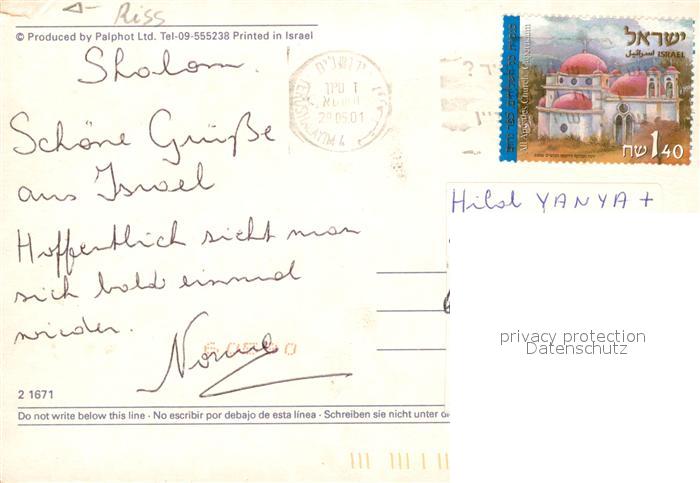 Riss
© Produced by Palphot Ltd. Tel-09-555238 Printed in Israel
Shalom.
Schöne Grüße
aus Israel
Hoffentlich sieht man
sich bald einmal
wieder.
2 1671
Do not write below this line · No escribir por debajo de esta línea · Schreiben sie nicht unter
ירושלים
29.05.01
JERUSALEM 4
ישראל
اسرائيل ISRAEL
All Apostles Church, Capernaum
1.40 ש"ח
Hilal YANYA +
privacy protection
Datenschutz